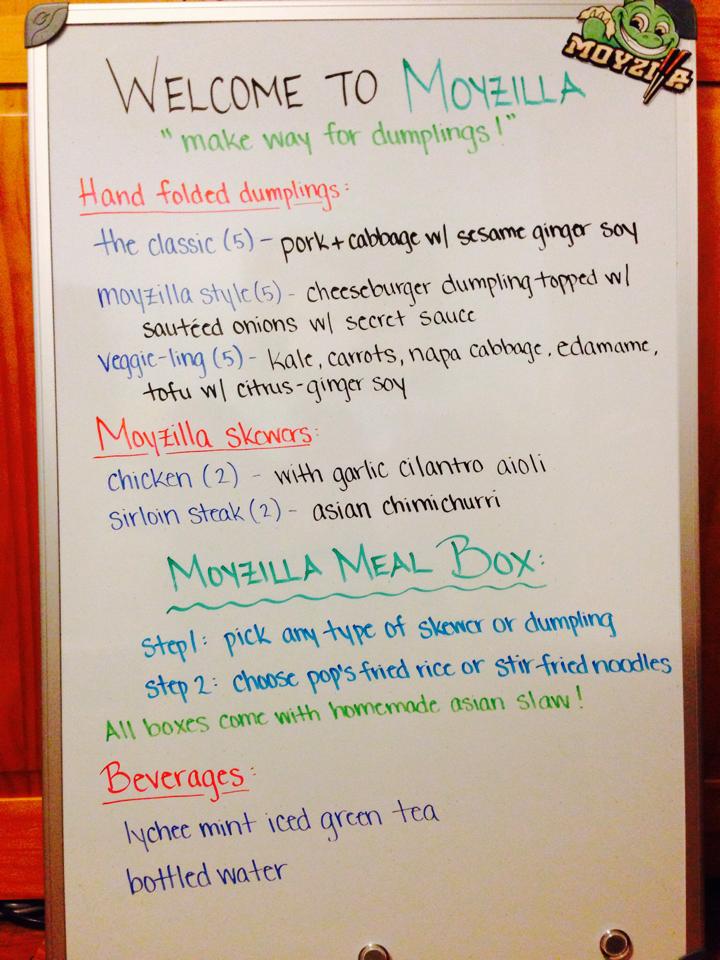 MOYZILLA
WELCOME TO MOYZILLA
"make way for dumplings!"
Hand folded dumplings:
the classic (5) - pork + cabbage w/ sesame ginger soy
moyzilla style (5) - cheeseburger dumpling topped w/
sautéed onions w/ secret sauce
veggie-ling (5) - kale, carrots, napa cabbage, edamame,
tofu w/ citrus-ginger soy
Moyzilla skewers:
chicken (2) - with garlic cilantro aioli
sirloin steak (2) - asian chimichurri
MOYZILLA MEAL BOX:
step 1: pick any type of skewer or dumpling
step 2: choose pop's fried rice or stir-fried noodles
All boxes come with homemade asian slaw!
Beverages:
lychee mint iced green tea
bottled water